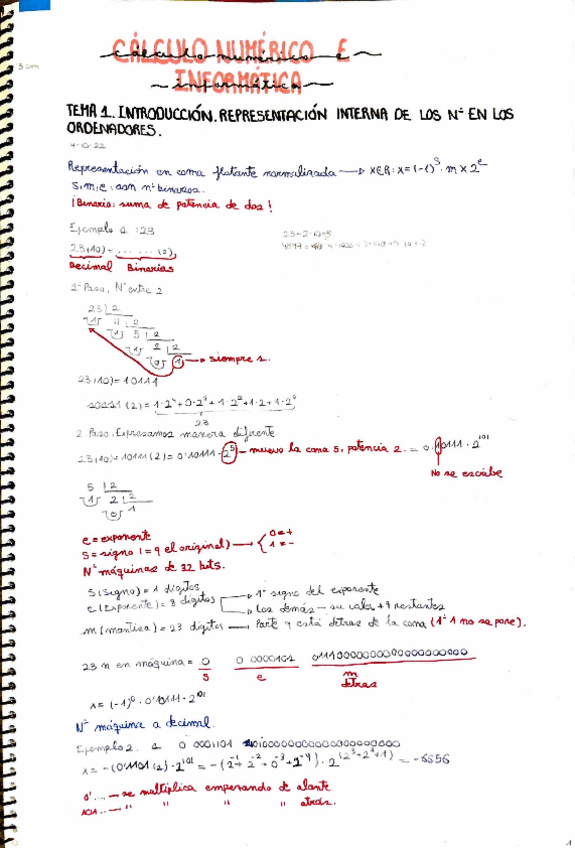 CÁLCULO NUMÉRICO E
INFORMÁTICA
TEMA 1. INTRODUCCIÓN. REPRESENTACIÓN INTERNA DE LOS Nº EN LOS
ORDENADORES.
4-10-22
Representación en coma flotante normalizada → x∈R: x=(-1)^s · m x 2^e
s, m, e: son nº binarios.
¡Binario: suma de potencia de dos!
Ejemplo 1: 23
23(10) = ........(2)
Decimal Binarios
1º Paso, Nº entre 2
23 | 2
11 | 2
5 | 2
2 | 2
1 → siempre 1.
23(10) = 10111
10111 (2) = 1·2⁴+0·2³+1·2²+1·2+1·2⁰
23
2 Paso, Expresamos manera diferente
23(10) = 10111(2) = 0'10111·2⁵ – muevo la coma 5, potencia 2. = 0'10111·2^101
No se escribe
5 | 2
2 | 2
1
e = exponente
s = signo (= q el original) → 0=+
1=-
Nº máquinas de 32 bits.
s (signo) = 1 dígitos
e (Exponente) = 8 dígitos → 1º signo del exponente
Los demás – su valor + 7 restantes
m (mantisa) = 23 dígitos → Parte q está detras de la coma (1º 1 no se pone).
23 n en máquina = 0 0 0000101 01110000000000000000000
s e m
detras
x = (-1)⁰ · 0'10111 · 2^101
Nº máquina a decimal.
Ejemplo 2. 1 0 0001101
= -6656
0'... – se multiplica empezando de alante
" " " " atrás.